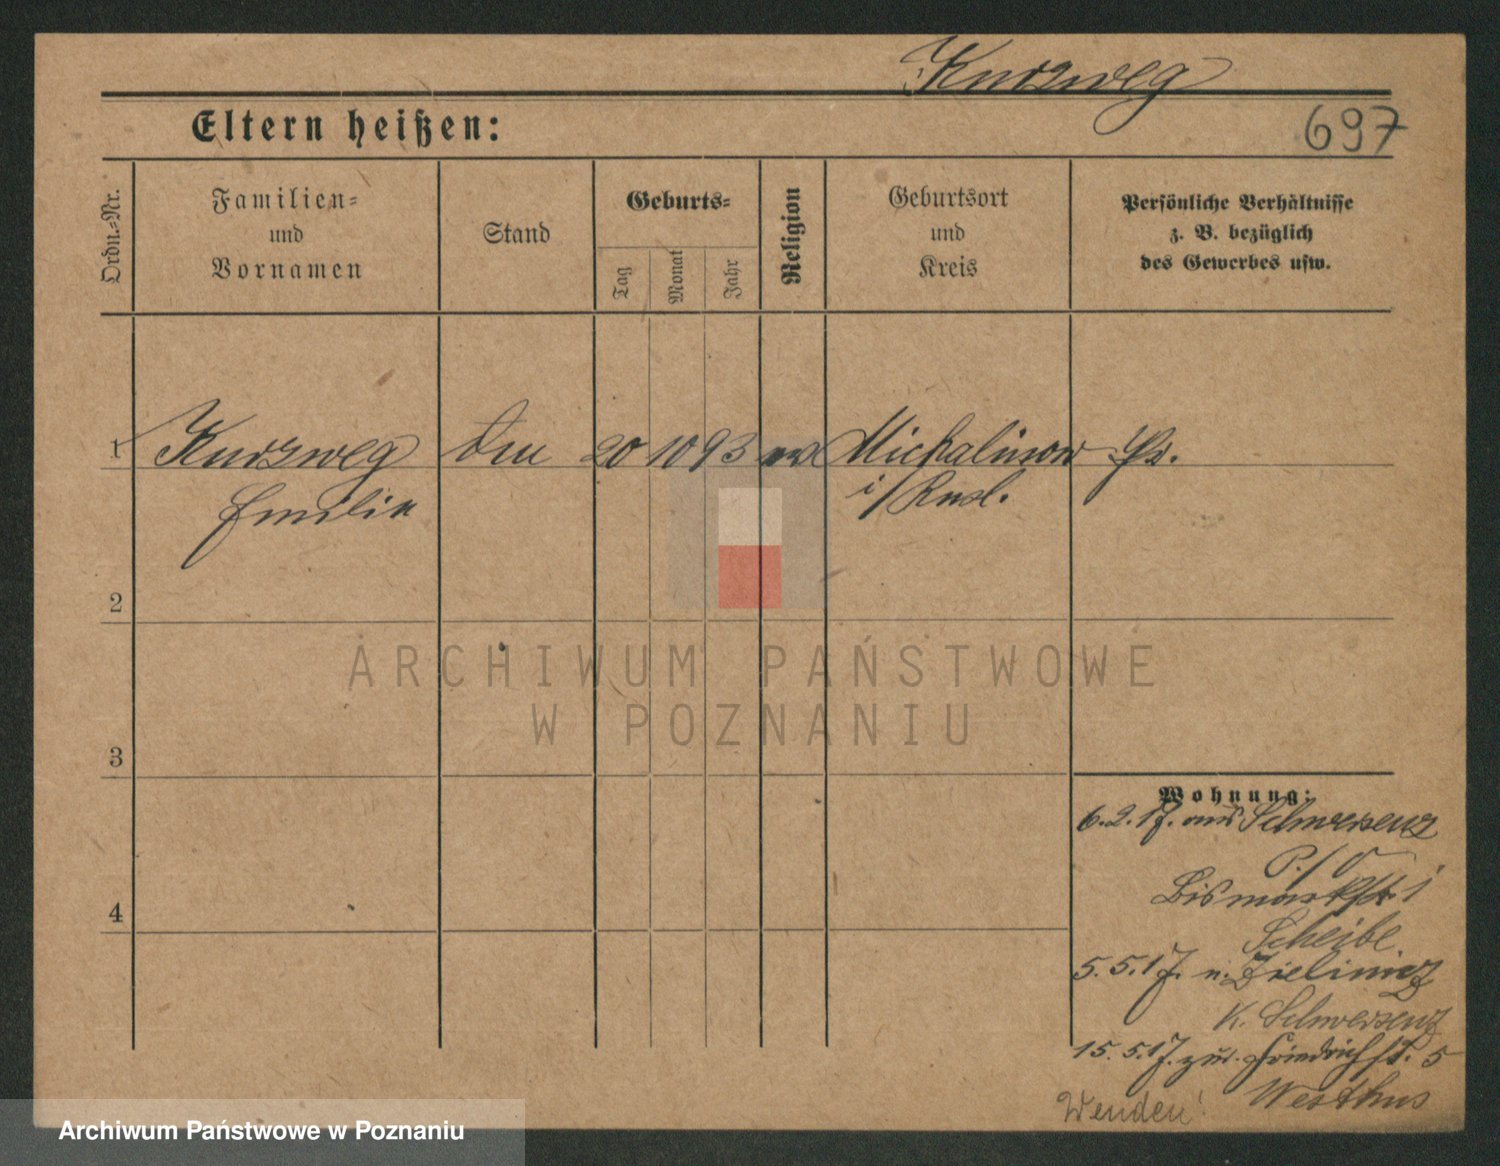 Kurzweg
Eltern heißen:
697
Ordn.-Nr.
Familien-
und
Vornamen
Stand
Geburts-
Tag
Monat
Jahr
Religion
Geburtsort
und
Kreis
Persönliche Verhältnisse
z. B. bezüglich
des Gewerbes usw.
1
Kurzweg
Emilie
20
10
93
ev
Michalinow
i/Rusl.
Pr.
2
3
4
Wohnung:
6.2.17. aus Schwersenz
P./O
Bismarkstr 1
Scheibe
5.5.17. n. Zieliniez
K. Schwersenz
15.5.17. zur. Friedrichst. 5
Westhus
Wenden!
ARCHIWUM PAŃSTWOWE
W POZNANIU
Archiwum Państwowe w Poznaniu